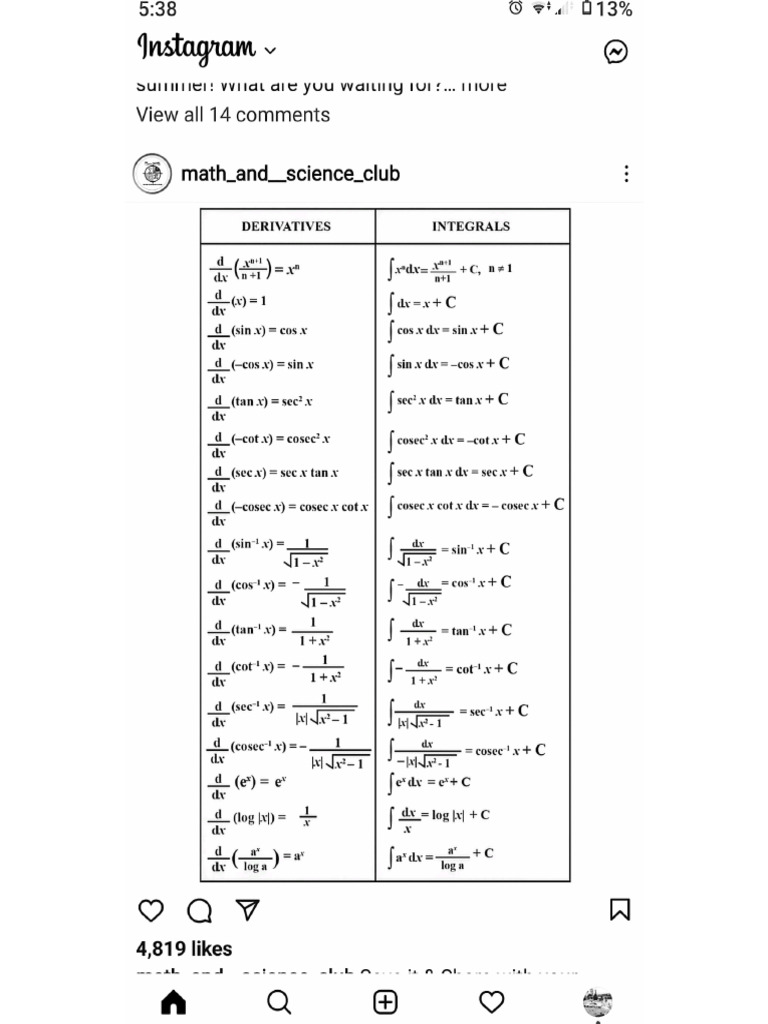 5:38 13%
Instagram
summer! What are you waiting for?... more
View all 14 comments
math_and__science_club
DERIVATIVES INTEGRALS
d/dx (xⁿ⁺¹/n +1) = xⁿ ∫xⁿdx = xⁿ⁺¹/n+1 + C, n ≠ 1
d/dx (x) = 1 ∫ dx = x + C
d/dx (sin x) = cos x ∫ cos x dx = sin x + C
d/dx (–cos x) = sin x ∫ sin x dx = –cos x + C
d/dx (tan x) = sec² x ∫ sec² x dx = tan x + C
d/dx (–cot x) = cosec² x ∫ cosec² x dx = –cot x + C
d/dx (sec x) = sec x tan x ∫ sec x tan x dx = sec x + C
d/dx (–cosec x) = cosec x cot x ∫ cosec x cot x dx = – cosec x + C
d/dx (sin⁻¹ x) = 1/√1 – x² ∫ dx/√1 – x² = sin⁻¹ x + C
d/dx (cos⁻¹ x) = – 1/√1 – x² ∫ – dx/√1 – x² = cos⁻¹ x + C
d/dx (tan⁻¹ x) = 1/1 + x² ∫ dx/1 + x² = tan⁻¹ x + C
d/dx (cot⁻¹ x) = – 1/1 + x² ∫ – dx/1 + x² = cot⁻¹ x + C
d/dx (sec⁻¹ x) = 1/|x|√x² – 1 ∫ dx/|x|√x² - 1 = sec⁻¹ x + C
d/dx (cosec⁻¹ x) = – 1/|x|√x² – 1 ∫ dx/–|x|√x² - 1 = cosec⁻¹ x + C
d/dx (eˣ) = eˣ ∫eˣ dx = eˣ + C
d/dx (log |x|) = 1/x ∫ dx/x = log |x| + C
d/dx (aˣ/log a) = aˣ ∫aˣ dx = aˣ/log a + C
4,819 likes
math_and__science_club Save it & Share with your